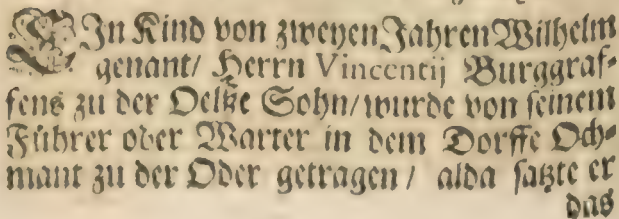 EIn Kind von zweyen Jahren Wilhelm
genant/ Herrn Vincentij Burggraf-
fens zu der Oelße Sohn/ wurde von seinem
Führer oder Warter in dem Dorffe Och-
mant zu der Oder getragen/ alda satzte er
das